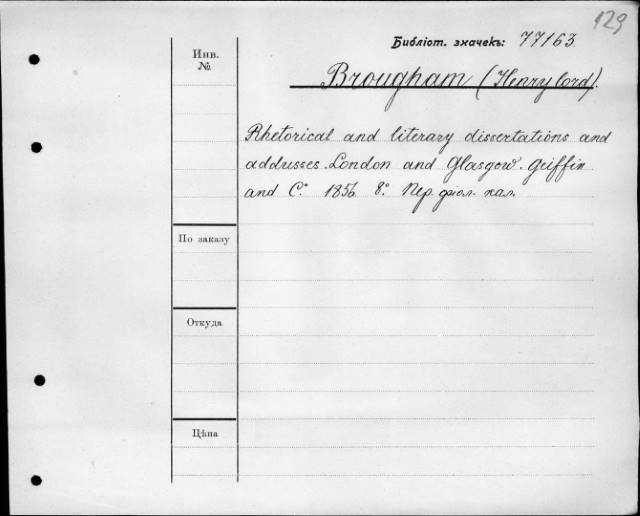 129
Библіот. значекъ: 77163.
Инв.
№
Brougham (Henry lord).
Rhetorical and literary dissertations and
addresses. London and Glasgow. Griffin
and Cº 1856. 8º. Пер. фіол. кал.
По заказу
Откуда
Цѣна